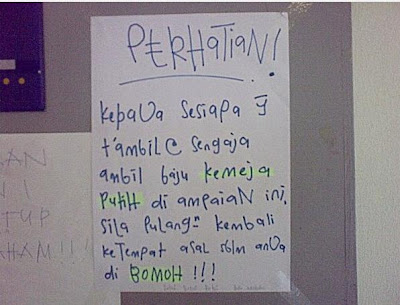 PERHATIAN!
kepada sesiapa yg
t'ambil @ sengaja
ambil baju kemeja
putih di ampaian ini,
sila pulangkn kembali
ketempat asal sblm anda
di BOMOH!!!
AN
N I
TUP
HAM!!!